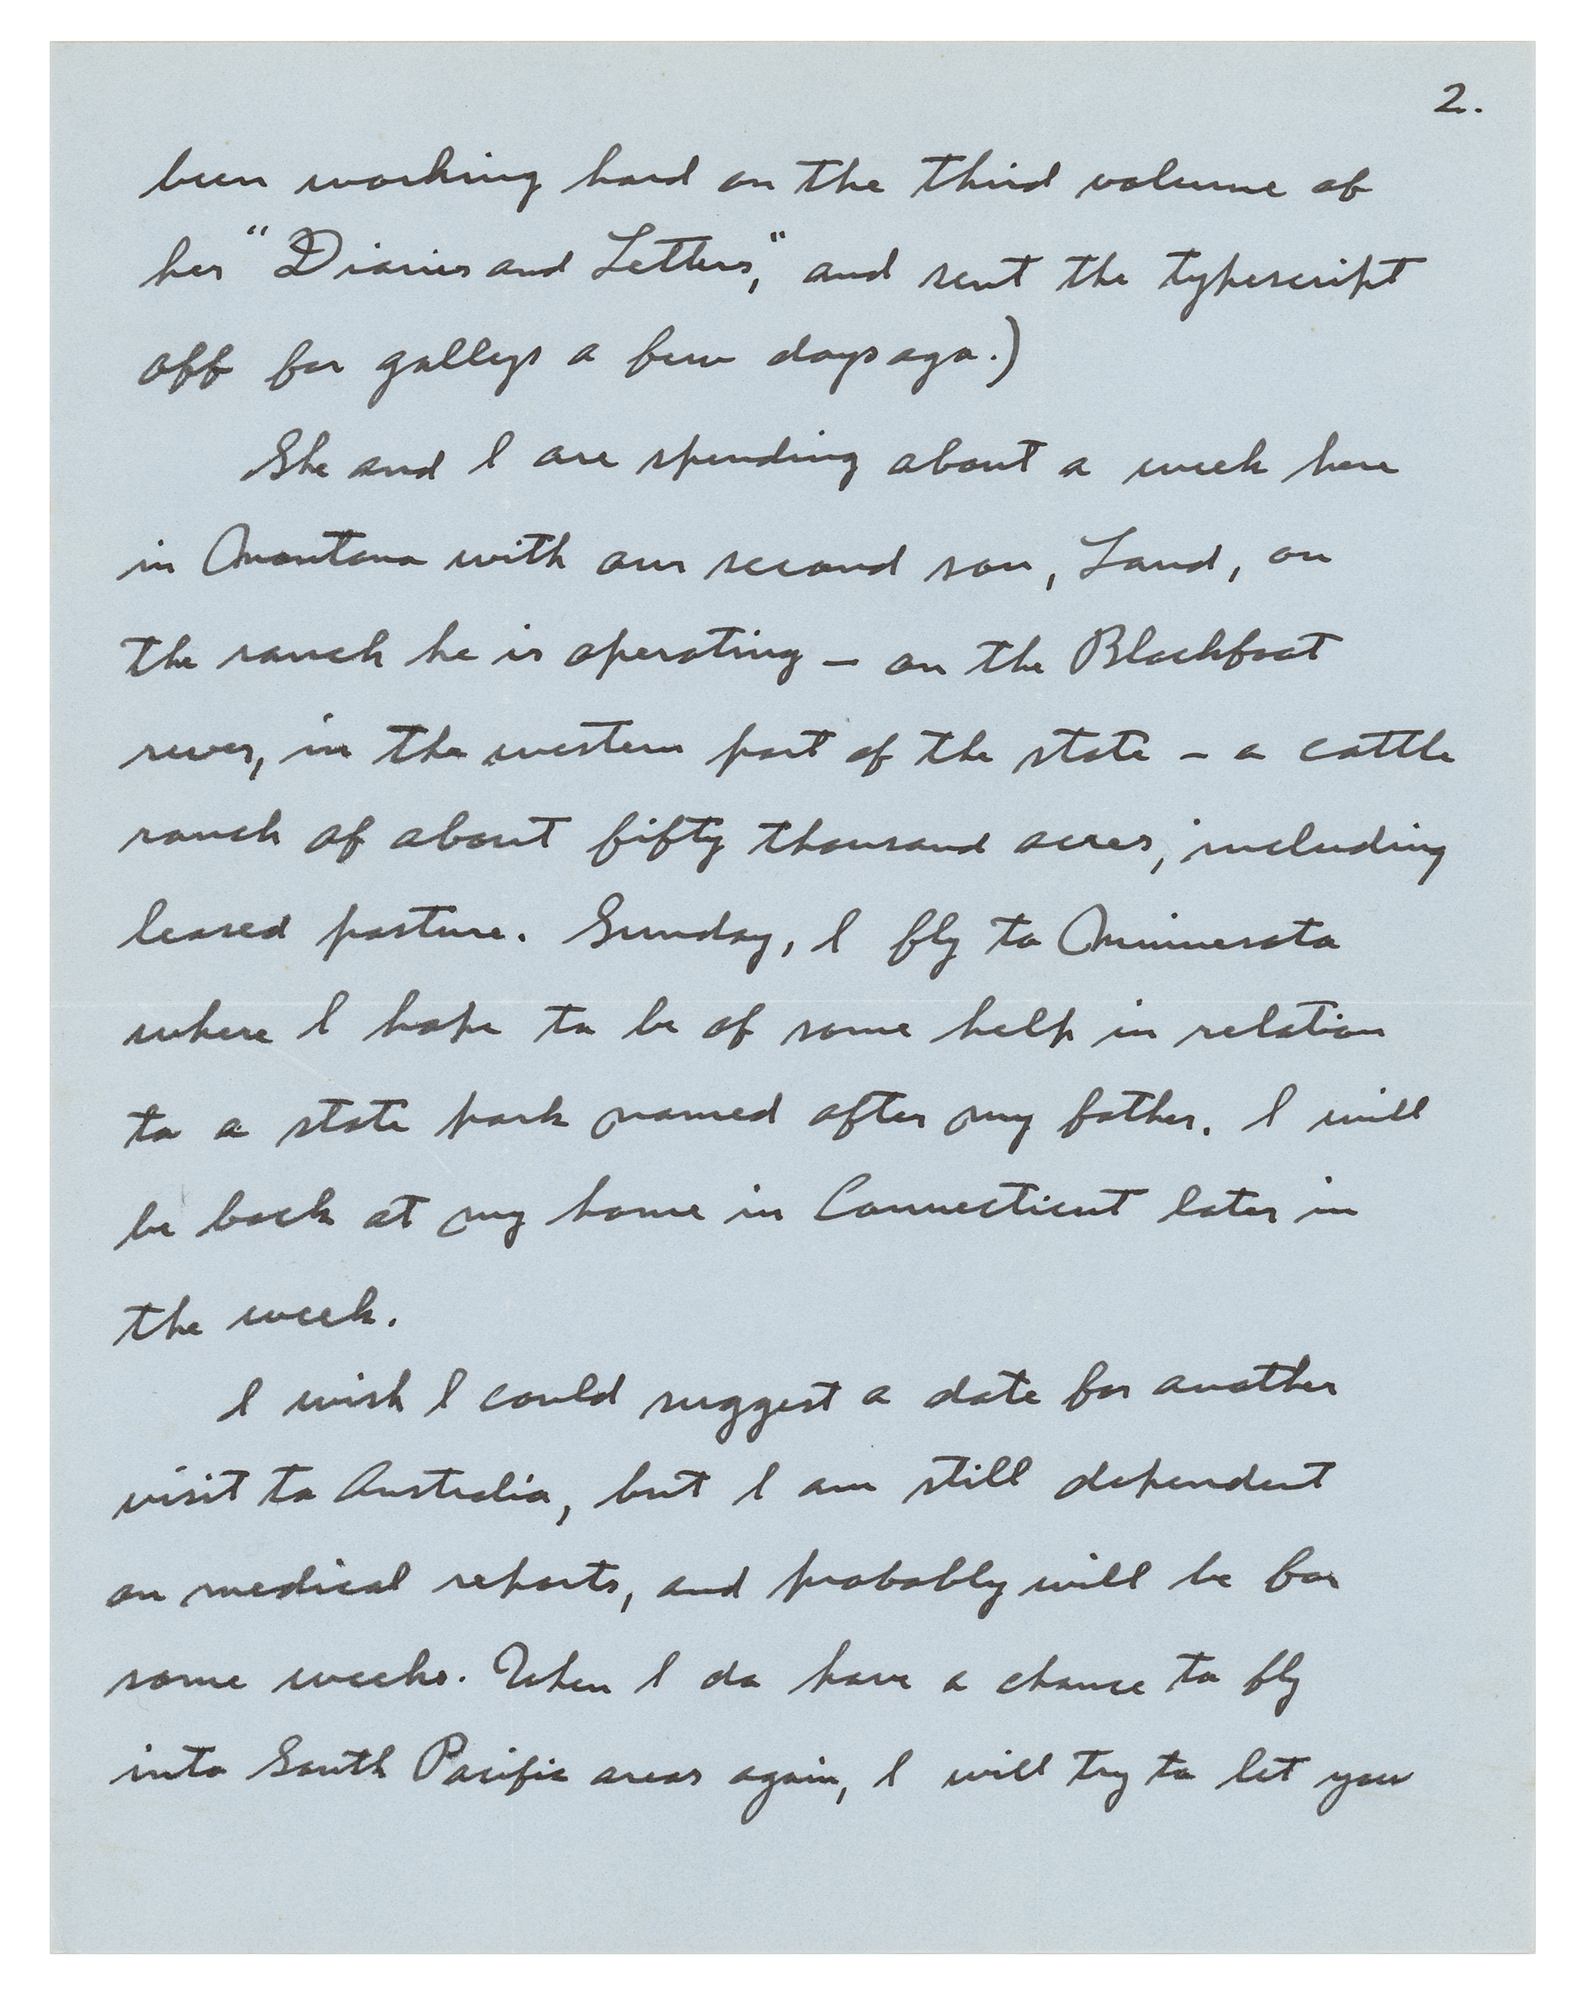 2.
been working hard on the third volume of
her "Diaries and Letters," and sent the typescript
off for galleys a few days ago.)
She and I are spending about a week here
in Montana with our second son, Land, on
the ranch he is operating — on the Blackfoot
river, in the western part of the state – a cattle
ranch of about fifty thousand acres, including
leased pasture. Sunday, I fly to Minnesota
where I hope to be of some help in relation
to a state park named after my father. I will
be back at my home in Connecticut later in
the week.
I wish I could suggest a date for another
visit to Australia, but I am still dependent
on medical reports, and probably will be for
some weeks. When I do have a chance to fly
into South Pacific areas again, I will try to let you